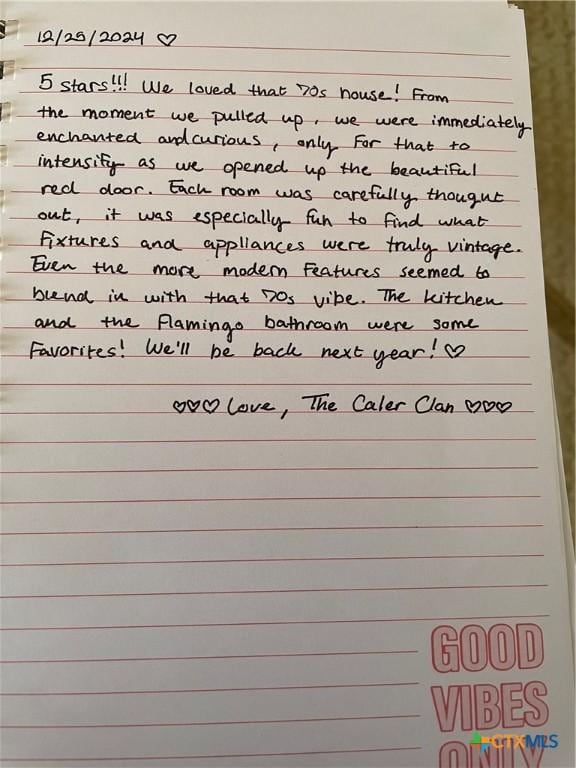 12/25/2024 ♡
5 stars!!! We loved that '70s house! From
the moment we pulled up, we were immediately
enchanted and curious, only for that to
intensify as we opened up the beautiful
red door. Each room was carefully thought
out, it was especially fun to find what
fixtures and appliances were truly vintage.
Even the more modern features seemed to
blend in with that '70s vibe. The kitchen
and the flamingo bathroom were some
favorites! We'll be back next year! ♡
♡♡♡ Love, The Caler Clan ♡♡♡
GOOD
VIBES
ONLY
CTXMLS